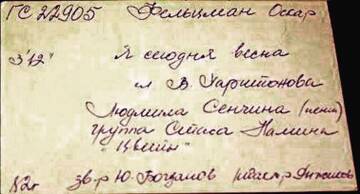 ГС 22905 Фельцман Оскар
3'42" Я сегодня весна
сл В. Харитонова
Людмила Сенчина (пение)
группа Стаса Намина
"Цветы"
№2г зв-р Ю. Богданов